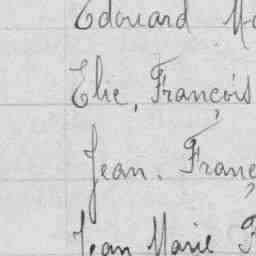 Edouard
Elie, François
Jean. Franç
Jean Marie F